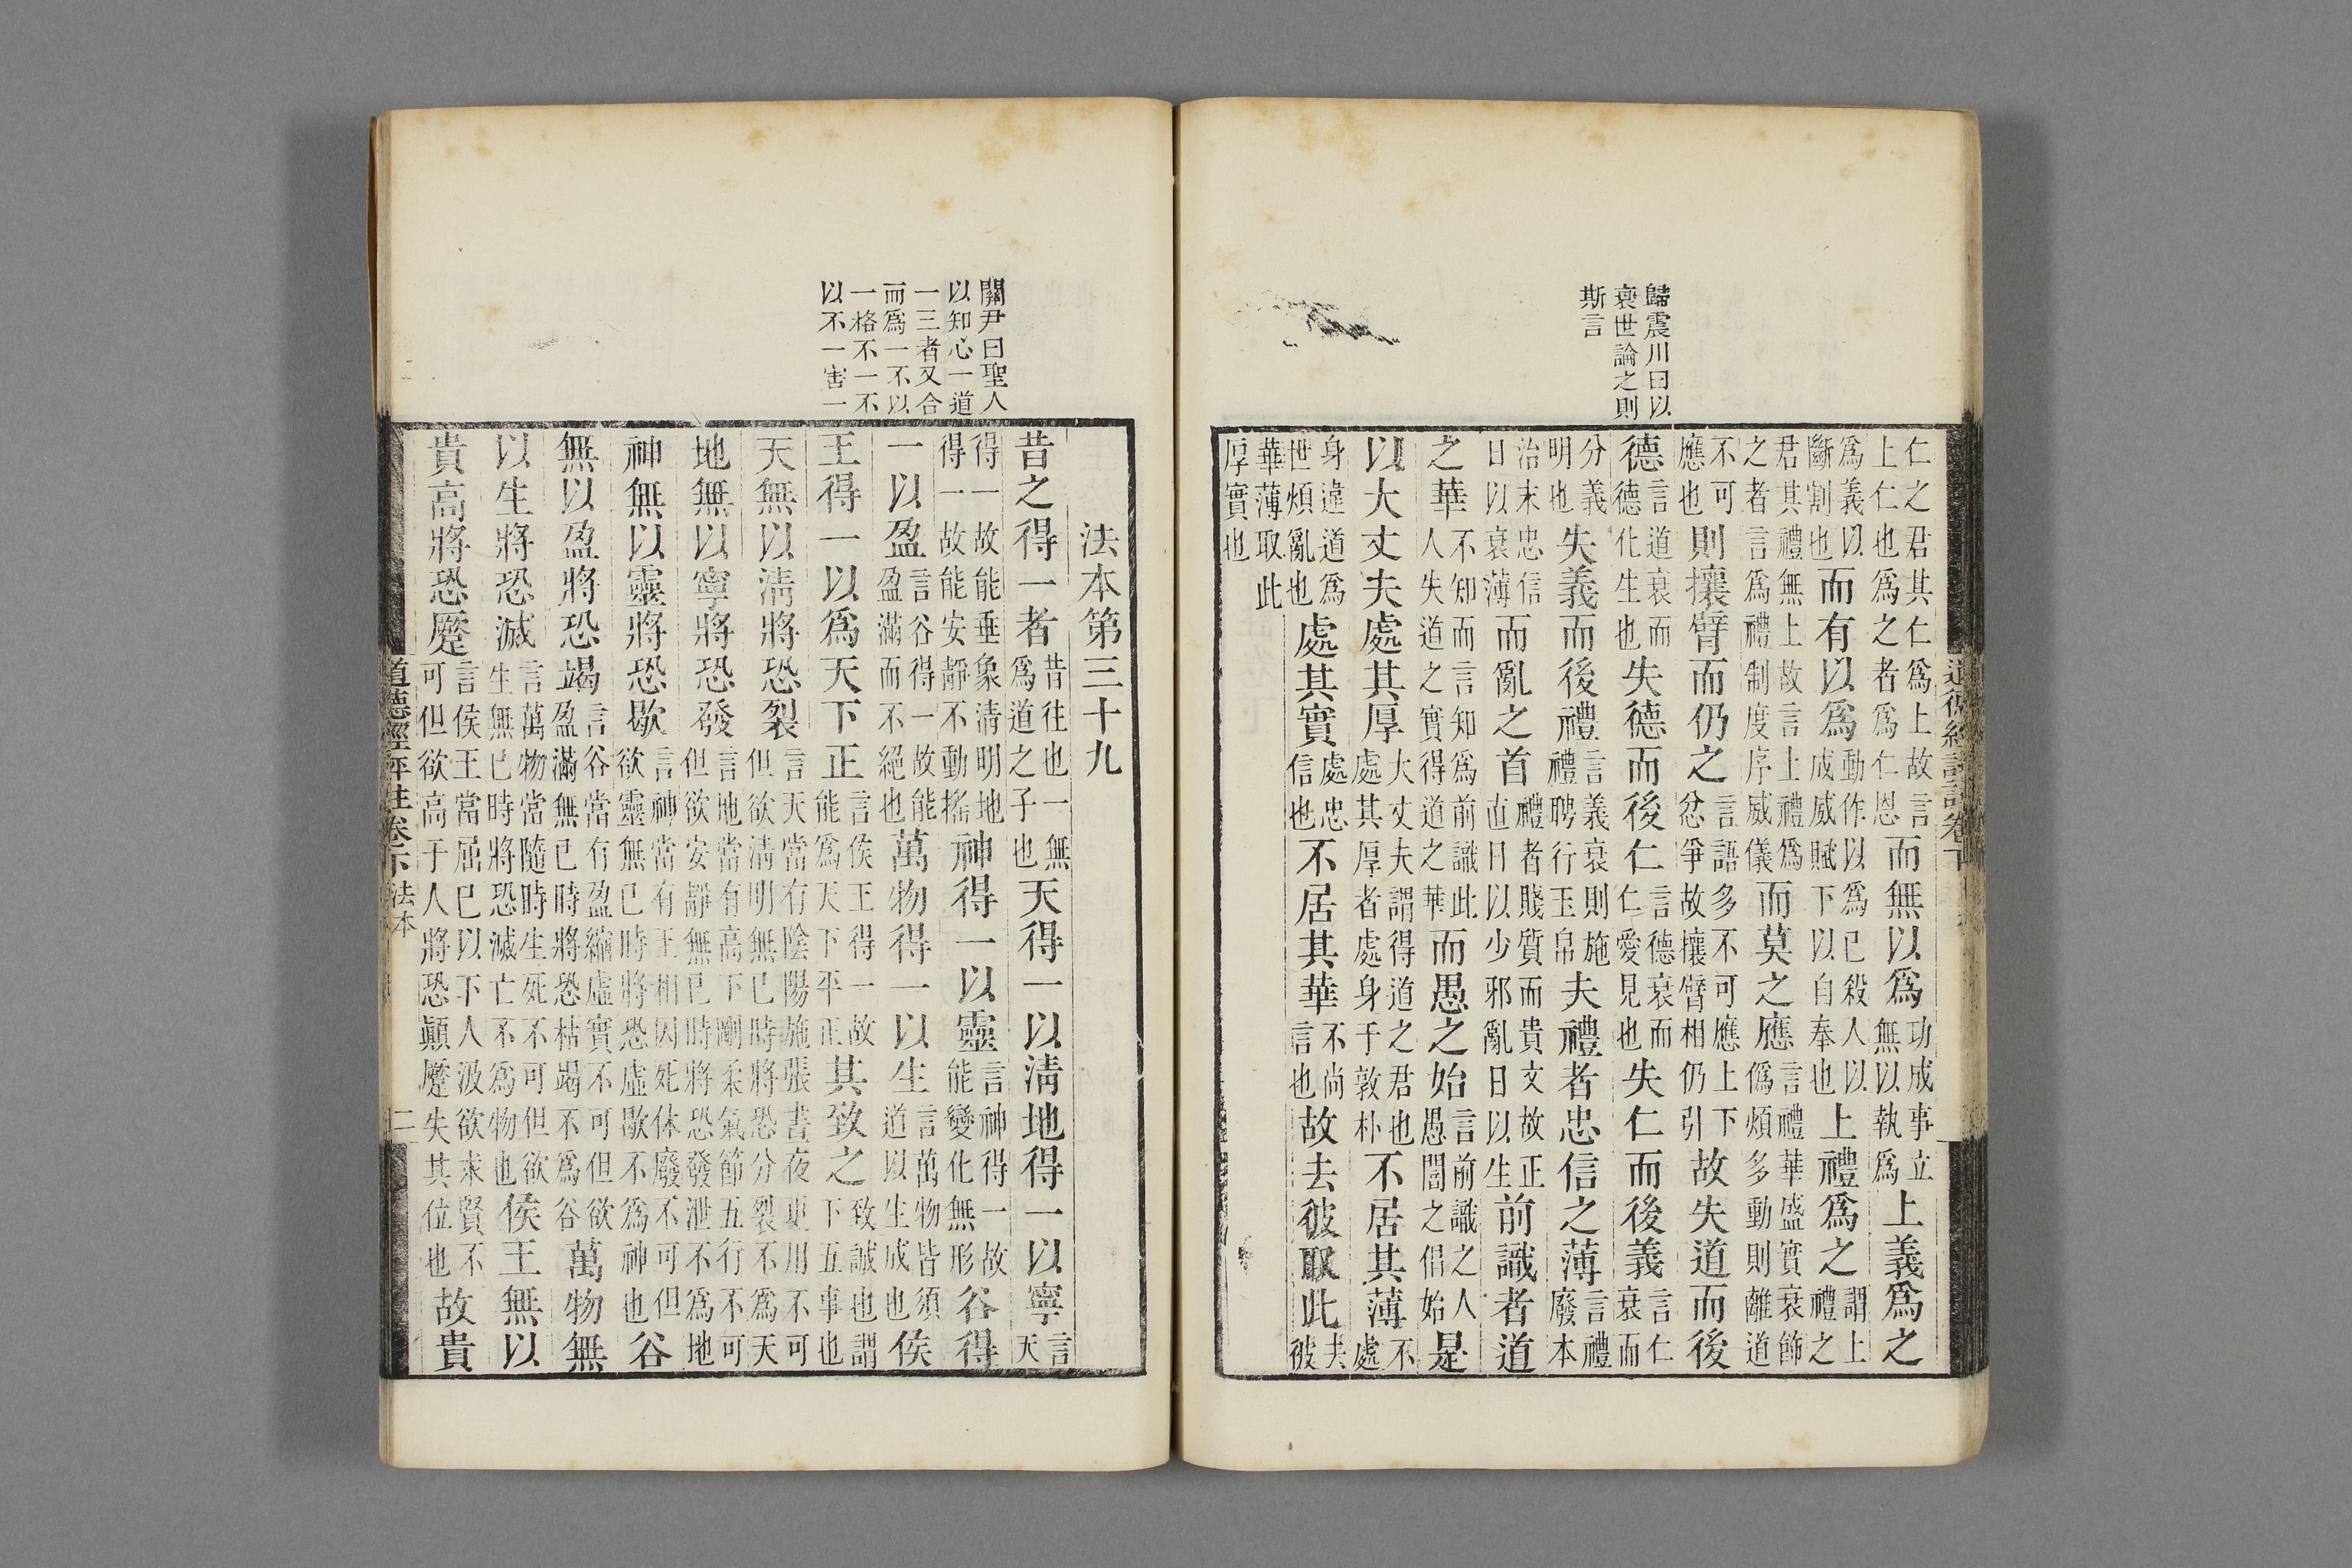 歸震川曰以
衰世論之則
斯言
仁之君其仁爲上故言
上仁也爲之者爲仁恩
而無以爲
功成事立
無以執爲
上義爲之
爲義以
斷割也
而有以爲
動作以爲已殺人以
成威賦下以自奉也
上禮爲之
謂上
禮之
君其禮無上故言上禮爲
之者言爲禮制度序威儀
而莫之應
言禮華盛實衰飾
僞煩多動則離道
不可
應也
則攘臂而仍之
言語多不可應上下
忿爭故攘臂相仍引
故失道而後
德
言道衰而
德化生也
失德而後仁
言德衰而
仁愛見也
失仁而後義
言仁
衰而
分義
明也
失義而後禮
言義衰則施
禮聘行玉帛
夫禮者忠信之薄
言禮
廢本
治末忠信
日以衰薄
而亂之首
禮者賤質而貴文故正
直日以少邪亂日以生
前識者道
之華
不知而言知爲前識此
人失道之實得道之華
而愚之始
言前識之人
愚闇之倡始
是
以大丈夫處其厚
大丈夫謂得道之君也
處其厚者處身于敦朴
不居其薄
不
處
身違道爲
世煩亂也
處其實
處忠
信也
不居其華
不尚
言也
故去彼取此
彼
華薄取此
厚實也
關尹曰聖人
以知心一道
一三者又合
而爲一不以
一格不一不
以不一害一
法本第三十九
昔之得一者
昔往也一無
爲道之子也
天得一以清地得一以寧
言
天
得一故能垂象清明地
得一故能安靜不動搖
神得一以靈
言神得一故
能變化無形
谷得
一以盈
言谷得一故能
盈滿而不絕也
萬物得一以生
言萬物皆須
道以生成也
侯
王得一以爲天下正
言侯王得一故
能爲天下平正
其致之
致誠也謂
下五事也
天無以清將恐裂
言天當有陰陽施張晝夜更用不可
但欲清明無已時將恐分裂不爲天
地無以寧將恐發
言地當有高下剛柔氣節五行不可
但欲安靜無已時將恐發泄不爲地
神無以靈將恐歇
言神當有王相囚死休廢不可但
欲靈無已時將恐虛歇不爲神也
谷
無以盈將恐竭
言谷當有盈縮虛實不可但欲
盈滿無已時將恐枯竭不爲谷
萬物無
以生將恐滅
言萬物當隨時生死不可但欲
生無已時將恐滅亡不爲物也
侯王無以
貴高將恐蹷
言侯王當屈已以下人汲欲求賢不
可但欲高于人將恐顛蹷失其位也
故貴
道德經評註卷下
法本
二